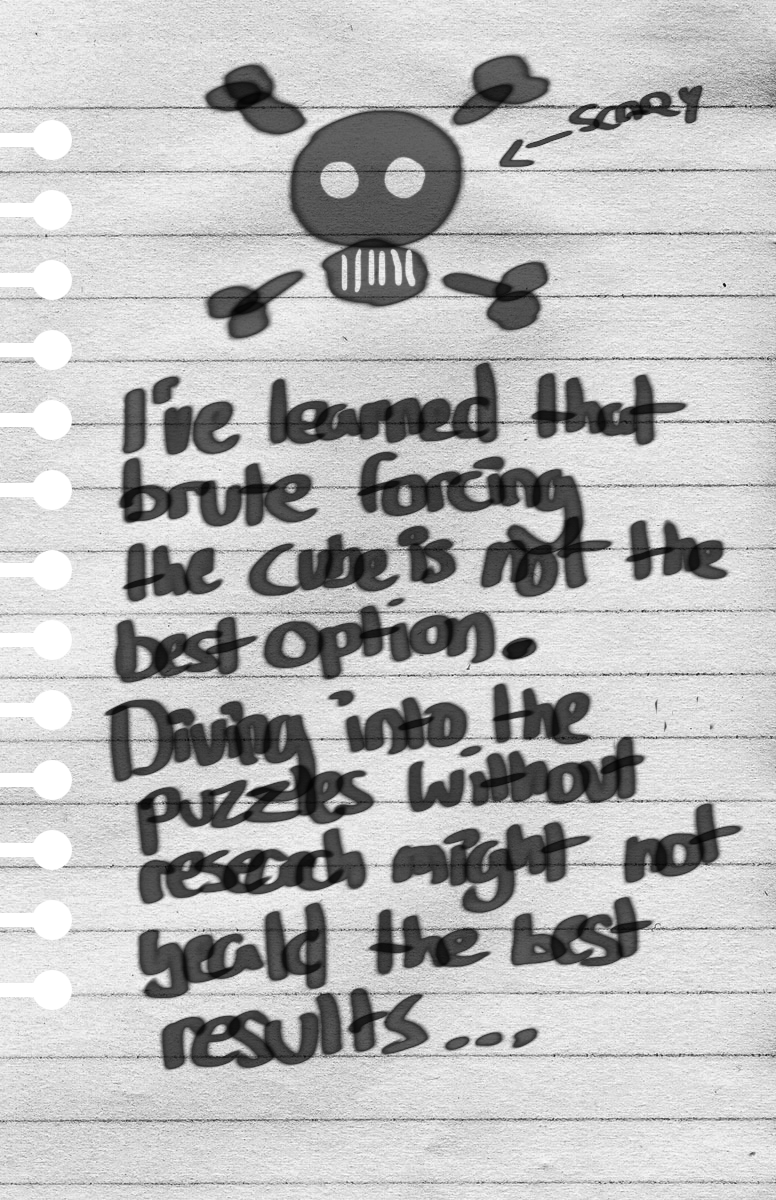 scary
I've learned that
brute forcing
the cube is not the
best option.
Diving into the
puzzles without
research might not
yeald the best
results...